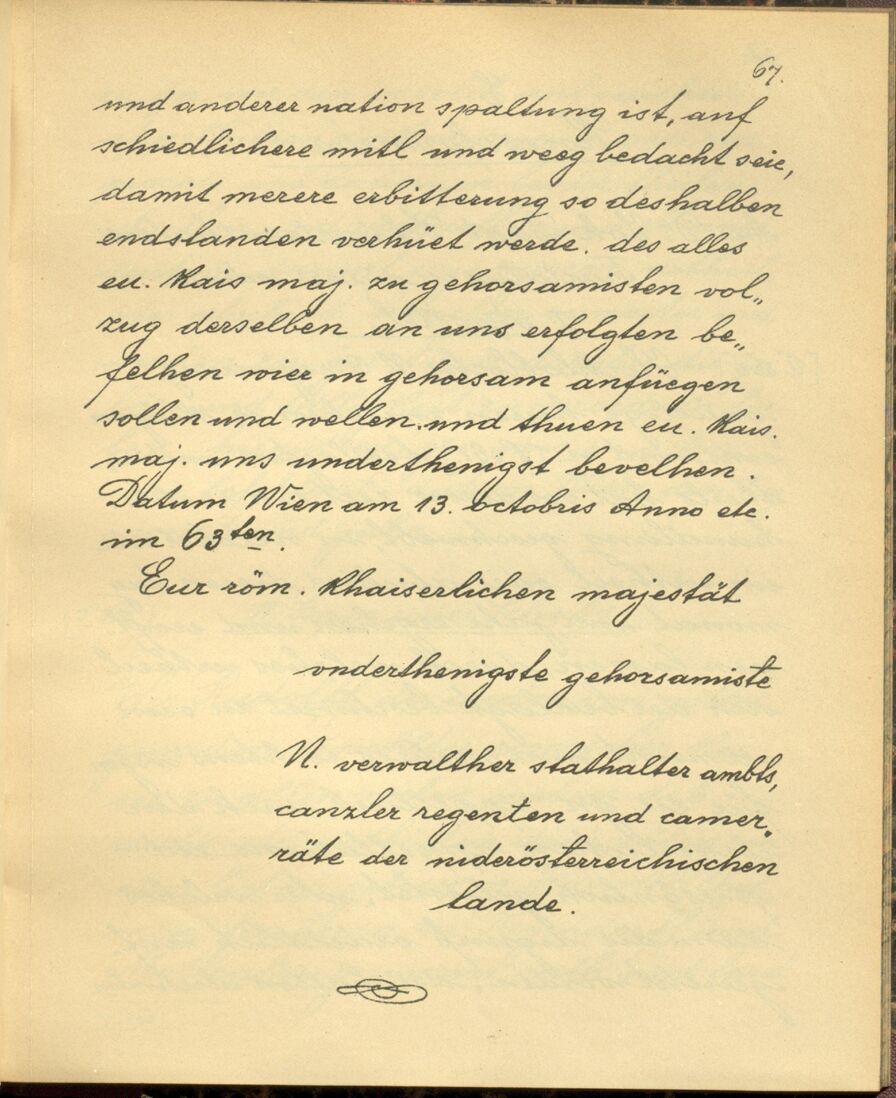 67.
und anderer nation spaltung ist, auf
schiedlichere mitl und weeg bedacht seie,
damit merere erbitterung so deshalben
endstanden verhüet werde. des alles
eu. Kais maj. zu gehorsamisten vol„
zug derselben an uns erfolgten be„
felhen wier in gehorsam anfüegen
sollen und wellen. und thuen eu. Kais.
maj. uns underthenigst bevelhen.
Datum Wien am 13. octobris Anno etc.
im 63ten.
Eur röm. Khaiserlichen majestät
vnderthenigste gehorsamiste
N. verwalther stathalter ambts,
canzler regenten und camer„
räte der niderösterreichischen
lande.